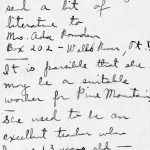 send a bit of
literature to
Mrs. Ada
Box 202 - Wells River, Vt.
It is possible that she
may be a suitable
worker for Pine Mountain
She used to be an
excellent teacher when
13 years old -